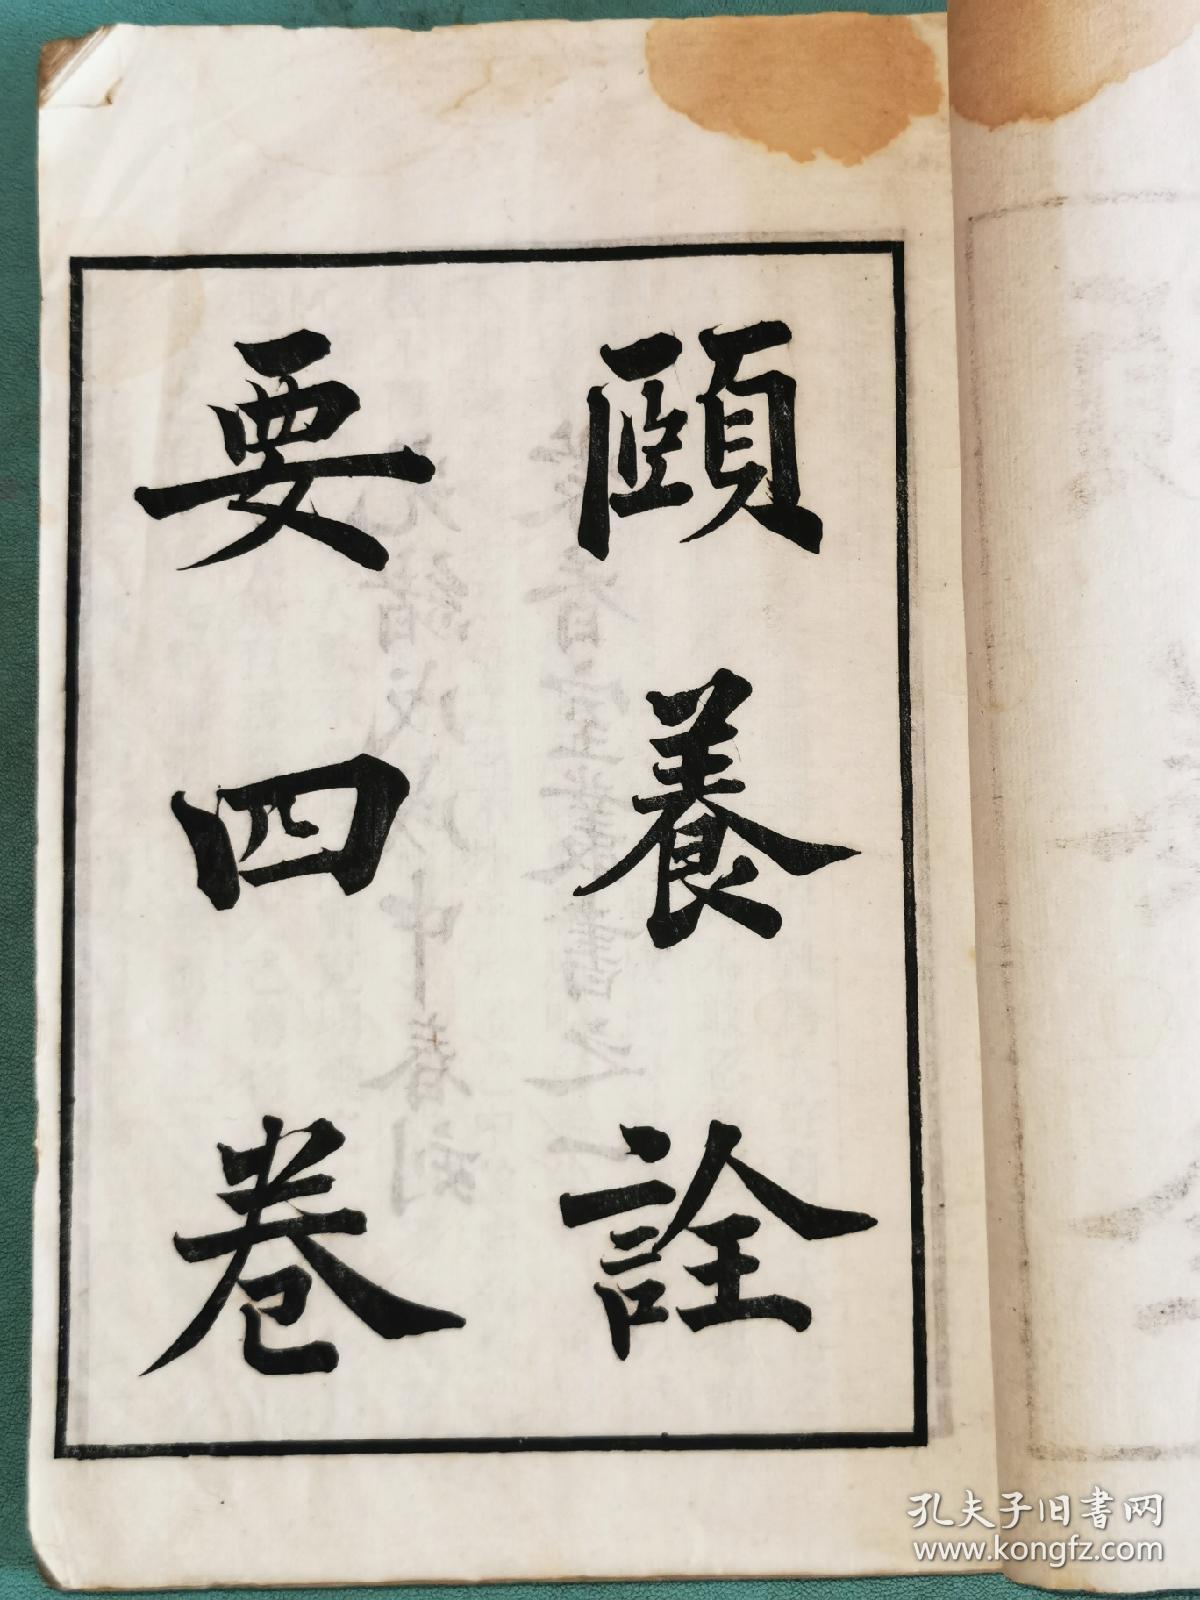 頤養詮
要四卷
孔夫子旧書网
www.kongfz.com